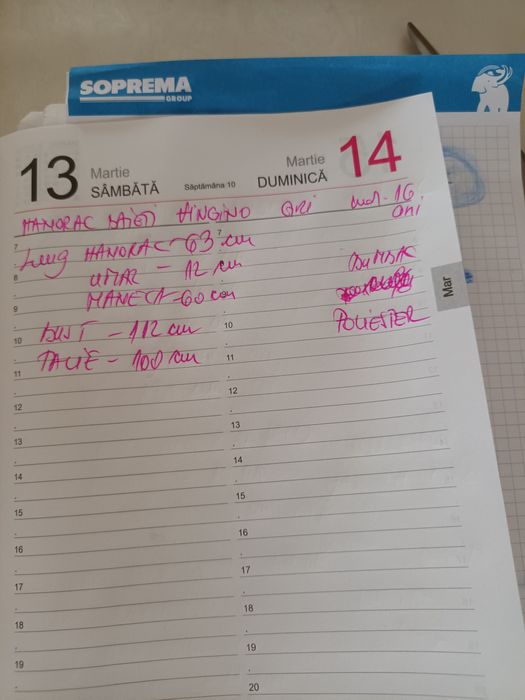 SOPREMA
GROUP
13 Martie SÂMBĂTĂ Săptămâna 10
Martie DUMINICĂ 14
HANORAC BĂIEȚI VINGINO GRI mas. 16 ani
Lung HANORAC - 63 cm
UMAR - 12 cm
MANECA - 60 cm
BUMBAC
BUST - 112 cm
POLIESTER
TALIE - 100 cm
Mar
7
8
9
10
11
12
13
14
15
16
17
18
19
7
10
11
12
13
14
15
16
17
18
19
20